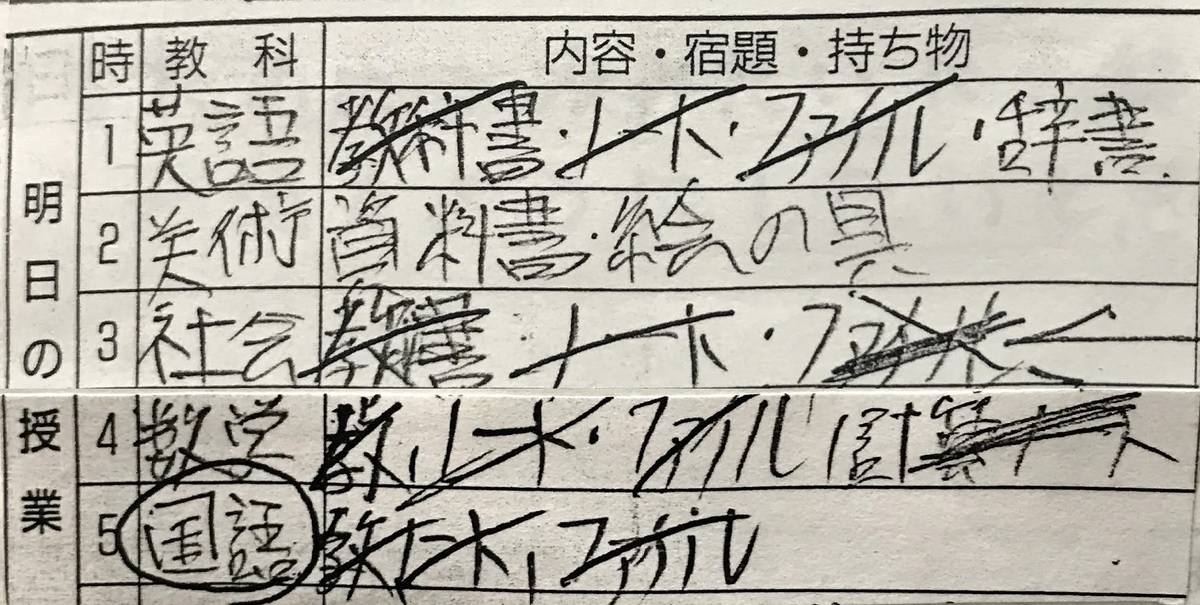 時 教科 内容・宿題・持ち物
明日の授業
1 英語 教科書・ノート・ファイル・辞書
2 美術 資料書・絵の具
3 社会 教科書 ノート・ファイル
4 数学 教 ノート・ファイル 計算ノート
5 国語 教 ノート ファイル